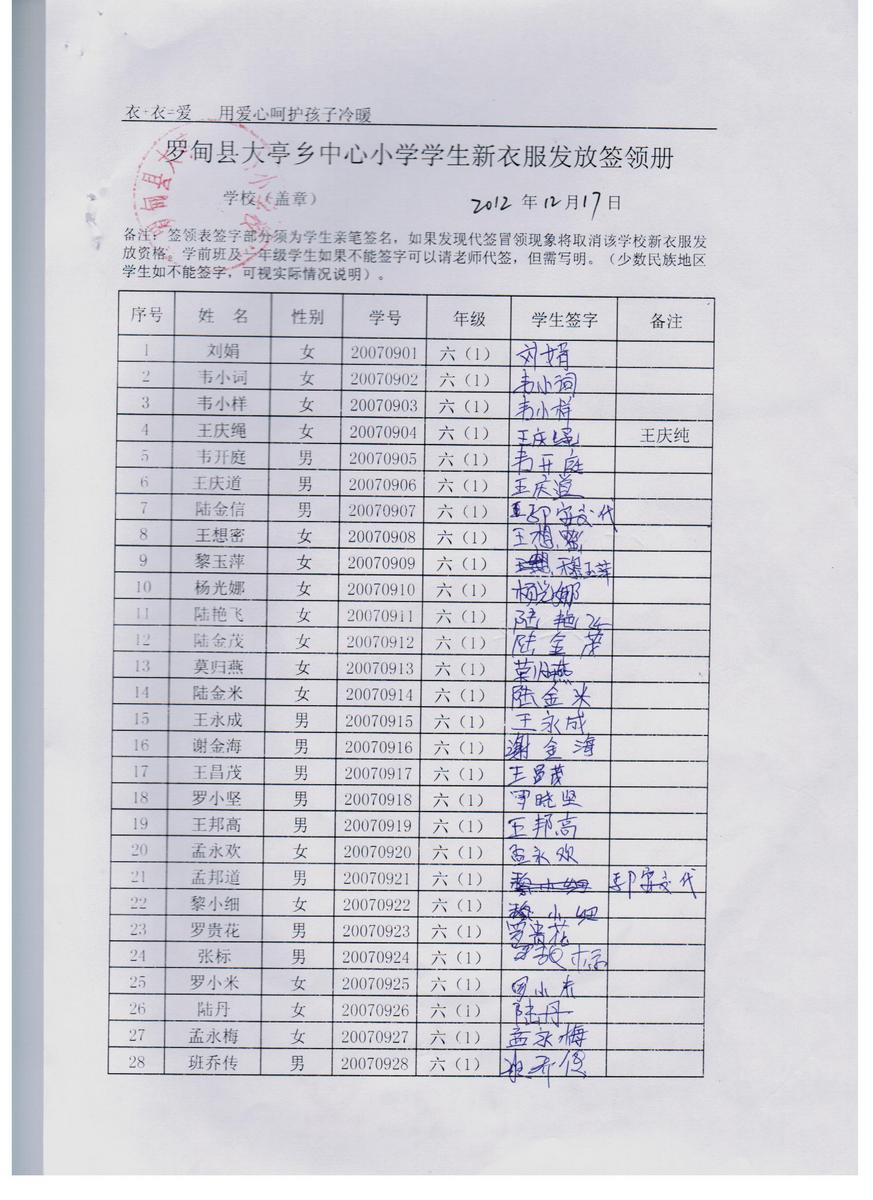 衣+衣=爱 用爱心呵护孩子冷暖
罗甸县大亭乡中心小学学生新衣服发放签领册
学校（盖章） 2012 年 12 月 17 日
备注：签领表签字部分须为学生亲笔签名，如果发现代签冒领现象将取消该学校新衣服发
放资格。学前班及一年级学生如果不能签字可以请老师代签，但需写明。（少数民族地区
学生如不能签字，可视实际情况说明）。
序号 姓 名 性别 学号 年级 学生签字 备注
1 刘娟 女 20070901 六（1） 刘娟
2 韦小词 女 20070902 六（1） 韦小词
3 韦小样 女 20070903 六（1） 韦小样
4 王庆绳 女 20070904 六（1） 王庆绳 王庆纯
5 韦开庭 男 20070905 六（1） 韦开庭
6 王庆道 男 20070906 六（1） 王庆道
7 陆金信 男 20070907 六（1） 安文代
8 王想密 女 20070908 六（1） 王想密
9 黎玉萍 女 20070909 六（1） 玉萍
10 杨光娜 女 20070910 六（1） 杨光娜
11 陆艳飞 女 20070911 六（1） 陆艳飞
12 陆金茂 女 20070912 六（1） 陆金茂
13 莫归燕 女 20070913 六（1） 莫归燕
14 陆金米 女 20070914 六（1） 陆金米
15 王永成 男 20070915 六（1） 王永成
16 谢金海 男 20070916 六（1） 谢金海
17 王昌茂 男 20070917 六（1） 王昌茂
18 罗小坚 男 20070918 六（1） 罗晓坚
19 王邦高 男 20070919 六（1） 王邦高
20 孟永欢 女 20070920 六（1） 孟永欢
21 孟邦道 男 20070921 六（1） 安文代
22 黎小细 女 20070922 六（1） 黎小细
23 罗贵花 男 20070923 六（1） 罗贵花
24 张标 男 20070924 六（1） 标
25 罗小米 女 20070925 六（1） 罗小米
26 陆丹 女 20070926 六（1） 陆丹
27 孟永梅 女 20070927 六（1） 孟永梅
28 班乔传 男 20070928 六（1） 班乔传